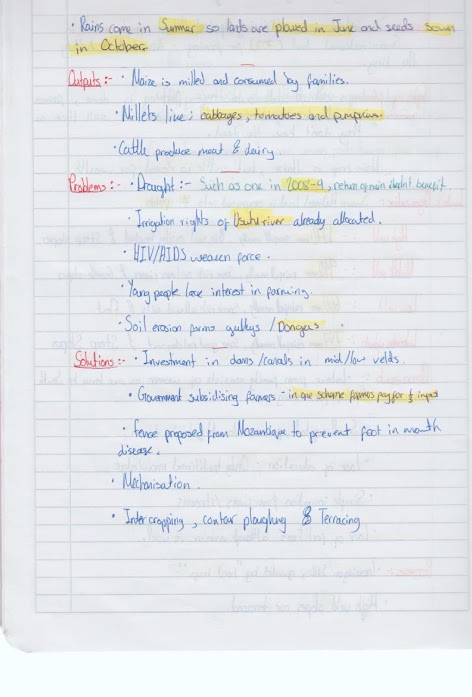 · Rains come in Summer so lands are plowed in June and seeds sown
in October.
Outputs:- · Maize is milled and consumed by families.
· Millets like: cabbages, tomatoes and pumpkins.
· Cattle produce meat & dairy.
Problems:- · Drought:- Such as one in 2008-9, return of rain didn't benefit.
· Irrigation rights of Usuthu river already allocated.
· HIV/AIDS weaken force.
· Young people lose interest in farming.
· Soil erosion forms gulleys / Dongas
Solutions:- · Investment in dams/canals in mid/low velds.
· Government subsidising farmers - in one scheme farmers pay for ½ input
· Fence proposed from Mozambique to prevent foot in mouth
disease.
· Mechanisation.
· Inter cropping, contour ploughing & Terracing